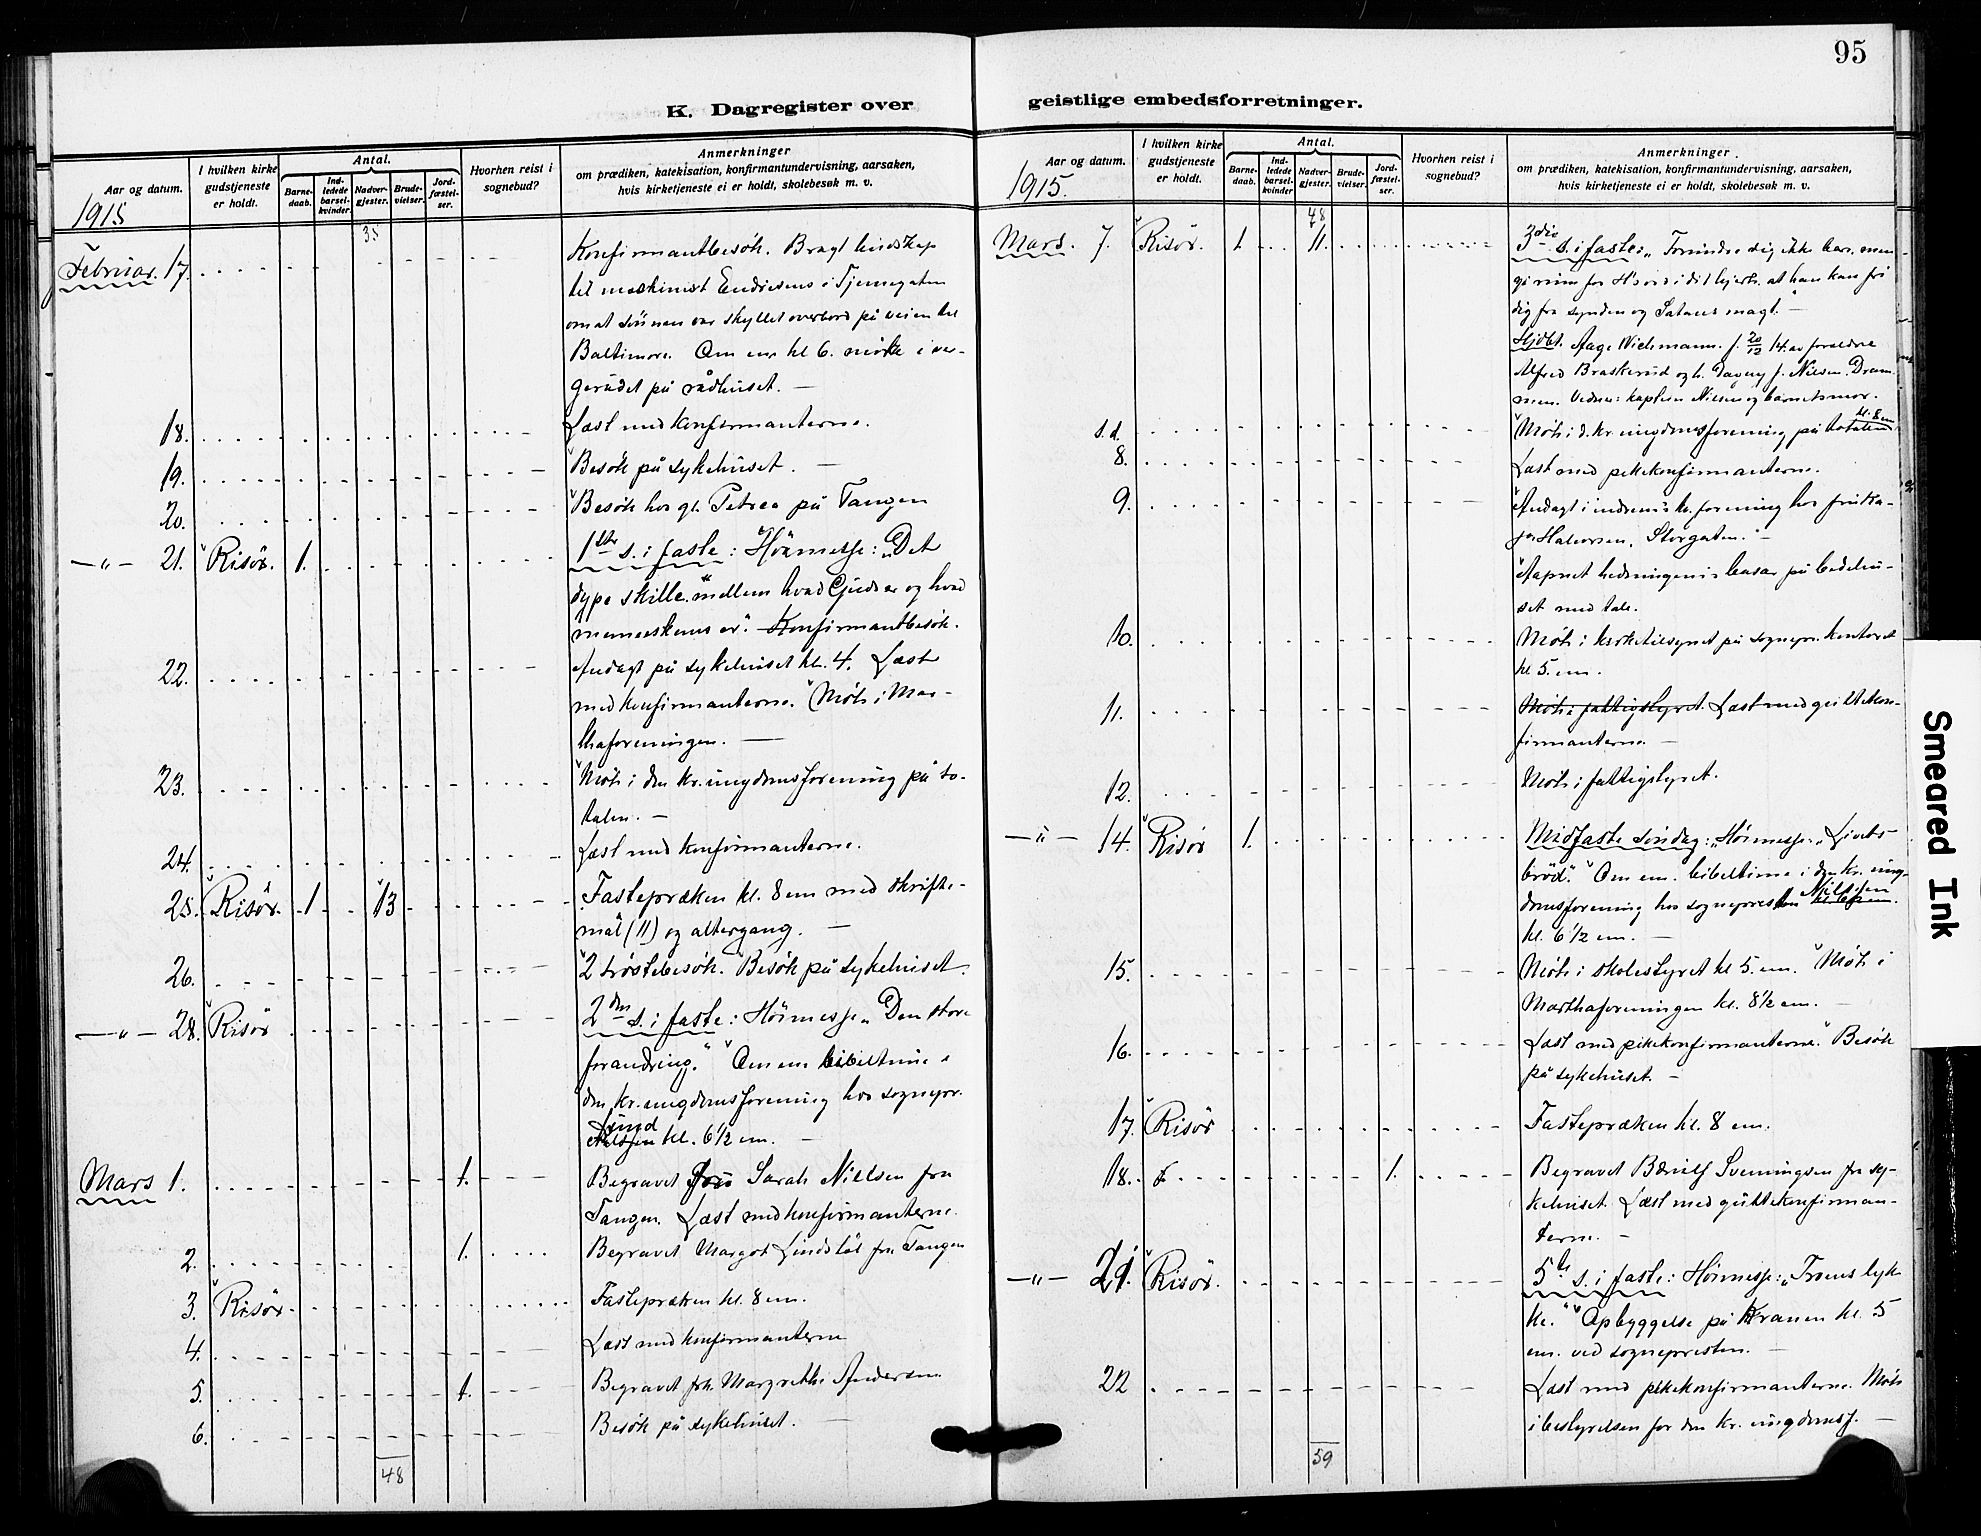 95
K. Dagregister over
geistlige embedsforretninger.
Aar og datum.
1915
I hvilken kirke gudstjeneste er holdt.
Antal.
Barne-daab.
Ind-ledede barsel-kvinder.
Nadver-gjester.
Brude-vielser.
Jord-fæstel-ser.
Hvorhen reist i sognebud?
Anmerkninger
om prædiken, katekisation, konfirmantundervisning, aarsaken,
hvis kirketjeneste ei er holdt, skolebesøk m. v.
35
Februar. 17. Konfirmantbesök. Bragt budskap
til maskinist Endresens i Tjennegaten
om at sönnen var skyllet overbord på veien til
Baltimore. Om em kl 6. möte i ver-
gerådet på rådhuset. —
18. Læst med konfirmanterne.
19. Besök på sykehuset. —
20. Besök hos gl. Petrea på Tangen
— " — 21. Risör. 1. 1ste s. i faste: Höimesse: „Det
dype skille mellem hvad Gud er og hvad
menneskene er". Konfirmantbesök.
22. Andagt på sykehuset kl. 4. Læst
med konfirmanterne. Möte i Mar-
thaforeningen. —
23. Möte i den kr. ungdomsforening på to-
talen. —
24. Læst med konfirmanterne.
25. Risör. 1 13 Fastepræken kl. 8 em med skrifte-
mål (11) og altergang. —
26. 2 tröstebesök. Besök på sykehuset.
— " — 28. Risör 2den s. i faste: Höimesse „Den store
forandring." Om em bibeltime i
den kr. ungdomsforening hos sognepr.
Lund
kl. 6 1/2 em. —
Mars 1. 1. Begravet Fru Sarah Nielsen fra
Tangen. Læst med konfirmanterne.
2. 1. Begravet Margot Lindstöl fra Tangen
3. Risör. Fastepræken kl. 8 em.
4. Læst med konfirmanterne
5. 1. Begravet frk. Margrethe Andersen
6. Besök på sykehuset. —
48
Aar og datum.
1915.
I hvilken kirke gudstjeneste er holdt.
Antal.
Barne-daab.
Ind-ledede barsel-kvinder
Nadver-gjester.
Brude-vielser.
Jord-fæstel-ser.
Hvorhen reist i sognebud?
Anmerkninger.
om prædiken, katekisation, konfirmantundervisning, aarsaken,
hvis kirketjeneste ei er holdt, skolebesøk m. v.
48
Mars. 7. Risör. 1 11. 3die s. i faste: „Forundre dig ikke bare, men
gi rum for Hs ord i dit hjerte. at han kan fri
dig fra synden og Satans magt." —
Hjdbt. Aage Wichmann. f. 20/12 14. av forældre
Alfred Braskerud og h. Dagny f. Nielsen. Dram
men. Vidner: kaptein Nielsen og barnets mor.
s. d. Möte i d. kr. ungdomsforening på totalen kl. 8 em
8. Læst med pikekonfirmanterne.
9. Andagt i indrem.s kv. forening hos fru Ka-
ja Halvorsen, Storgaten. —
Aapnet hedningem.s basar på bedehu-
set med tale.
10. Möte i kirketilsynet på sognepr. kontoret
kl 5. em.
11. Möte i fattigstyret. Læst med guttekon-
firmanterne. —
12. Möte i fattigstyret.
— " — 14. Risör 1. Midfaste söndag: „Höimesse: „Livets
bröd." Om em. bibeltime i den kr. ung-
domsforening hos sognepresten Nielssen
kl. 6 1/2 em. —
15. Möte i skolestyret kl 5. em. Möte i
Marthaforeningen kl. 8 1/2 em. —
16. Læst med pikekonfirmanterne. Besök
på sykehuset. —
17. Risör Fastepræken kl. 8 em.
18. 1. Begravet Svenningsen fra sy-
kehuset. Læst med guttekonfirman-
terne. —
— " — 21. Risör. 5te s. i faste: Höimesse: „Troens lyk
ke." Opbyggelse på Kranen kl. 5
em. ved sognepresten. —
22 Læst med pikekonfirmanterne. Möte
i bestyrelsen for den kr. ungdomsf. —
59
Smeared Ink